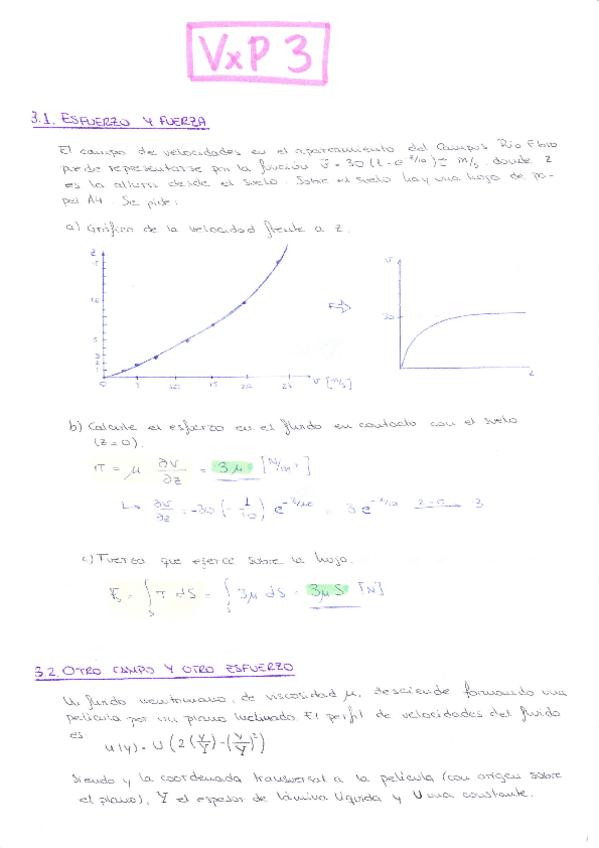 VxP 3
3.1. ESFUERZO Y FUERZA
El campo de velocidades en el aparcamiento del Campus Río Ebro
puede representarse por la función v̄ = 30 (1 - e^-z/10) ī m/s. donde z
es la altura desde el suelo. Sobre el suelo hay una hoja de pa-
pel A4. Se pide:
a) Gráfico de la velocidad frente a z.
z
v [m/s]
v
30
z
b) Calcule el esfuerzo en el fluido en contacto con el suelo
(z=0).
τ = μ ∂v/∂z = 3μ [N/m²]
∂v/∂z = -30 (-1/10) e^-z/10 = 3 e^-z/10 z=0 3
c) Fuerza que ejerce sobre la hoja.
= ∫s τ dS = ∫s 3μ dS = 3μS [N]
3.2. OTRO CAMPO Y OTRO ESFUERZO
Un fluido newtoniano, de viscosidad μ, desciende formando una
película por un plano inclinado. El perfil de velocidades del fluido
es:
u(y) = U (2(y/Y) - (y/Y)²)
siendo y la coordenada transversal a la película (con origen sobre
el plano), Y el espesor de lámina líquida y U una constante.